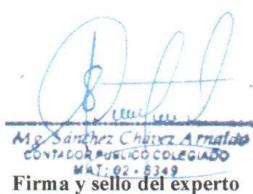 Mg. Sánchez Chávez Arnaldo
CONTADOR PUBLICO COLEGIADO
MAT: 02 - 8349
Firma y sello del experto